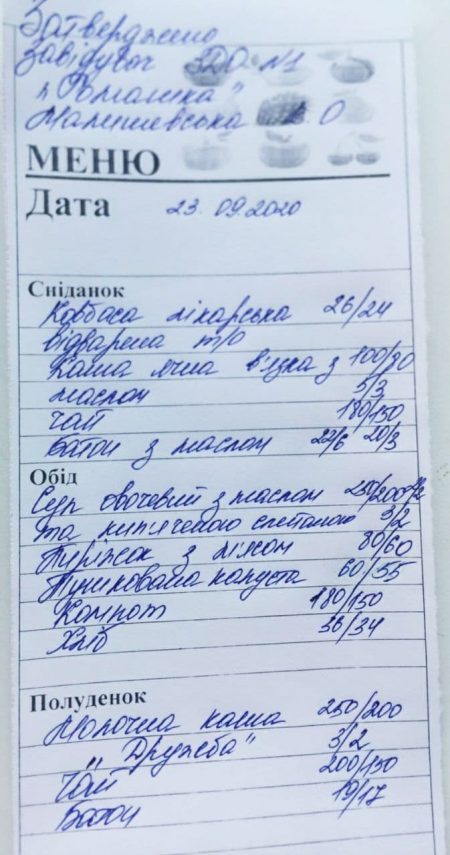 Затверджено
завідувач ЗДО №1
"Ромашка"
Малишевська О
МЕНЮ
Дата 23.09.2020
Сніданок
Ковбаса лікарська 26/24
відварена т/о
Каша ячна в'язка з 100/90
маслом 5/3
Чай 180/150
Батон з маслом 22/6 20/3
Обід
Суп овочевий з маслом 250/200
та кип'яченою сметаною 3/2
Пиріжок з м'ясом 80/60
Тушкована капуста 60/55
Компот 180/150
Хліб 36/34
Полуденок
Молочна каша 250/200
"Дружба" 3/2
Чай 200/150
Батон 19/17